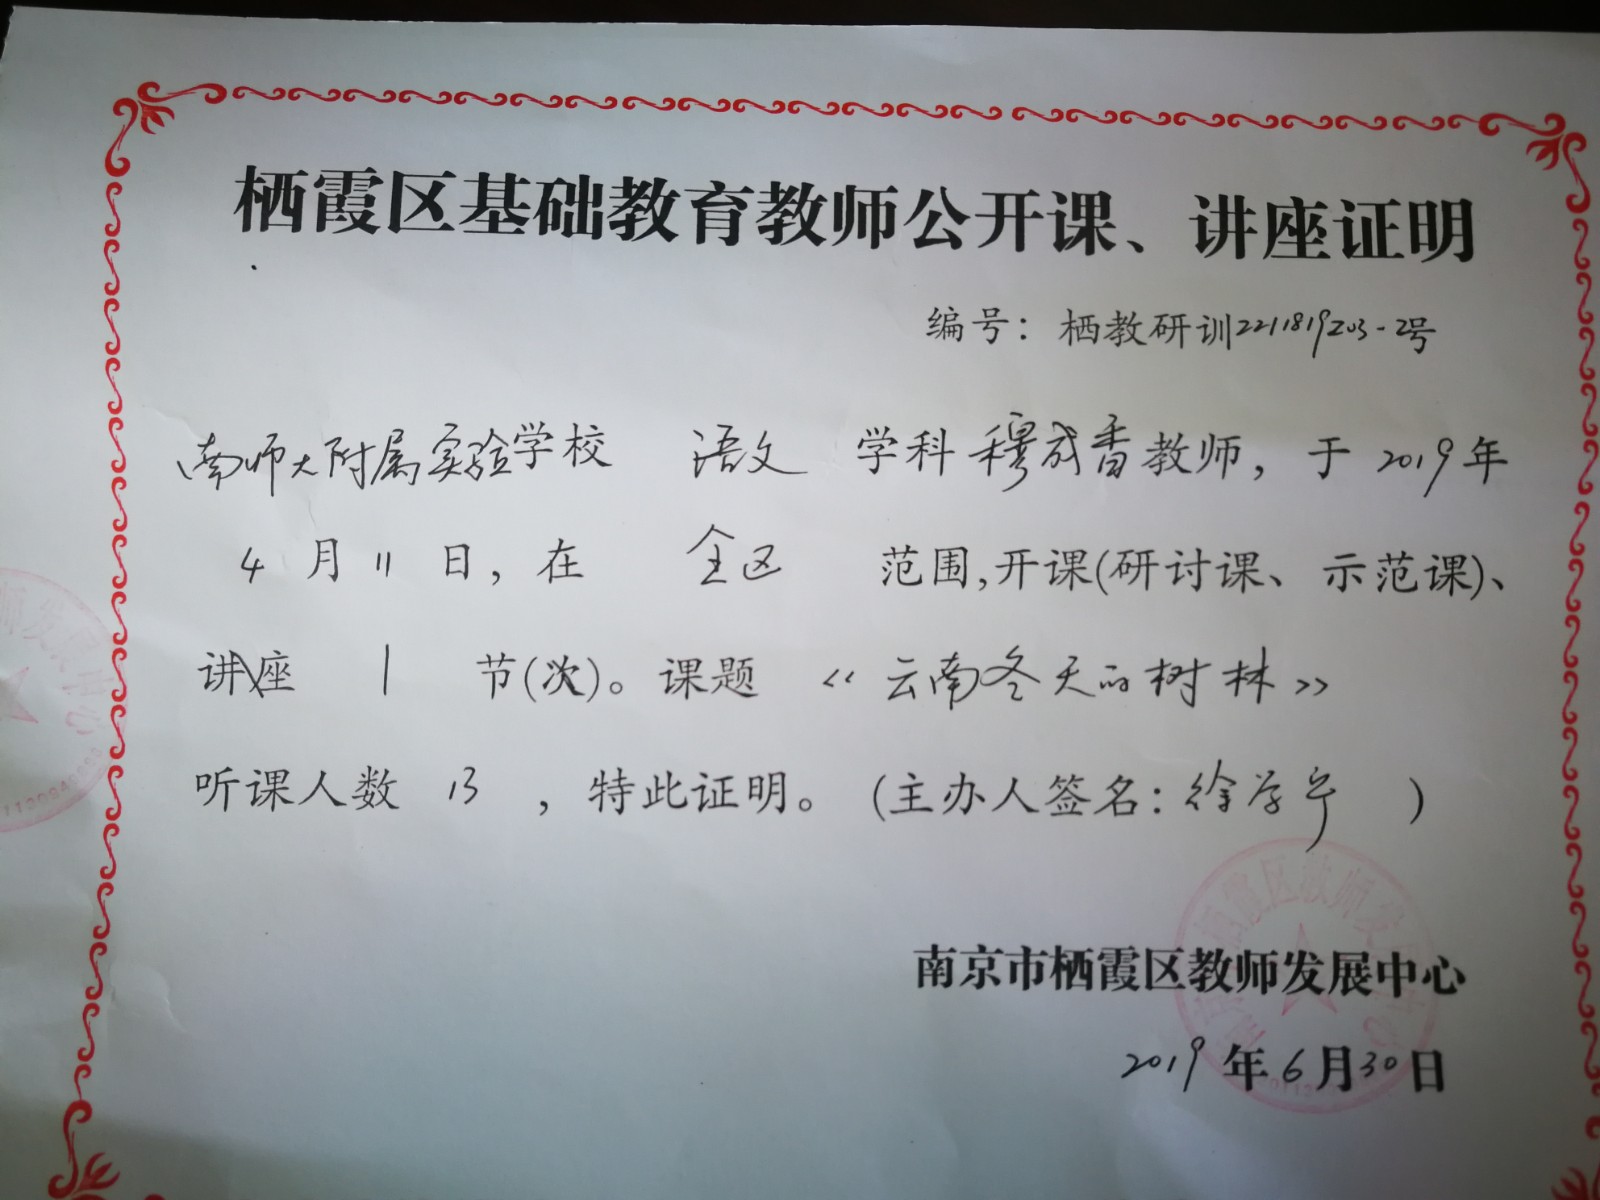 栖霞区基础教育教师公开课、讲座证明
编号：栖教研训2211819Z03-2号
南师大附属实验学校 语文 学科穆成香教师，于2019年
4月11日，在 全区 范围,开课(研讨课、示范课)、
讲座 1 节(次)。课题《云南冬天的树林》
听课人数 13 ，特此证明。(主办人签名：徐学宁)
南京市栖霞区教师发展中心
2019年6月30日